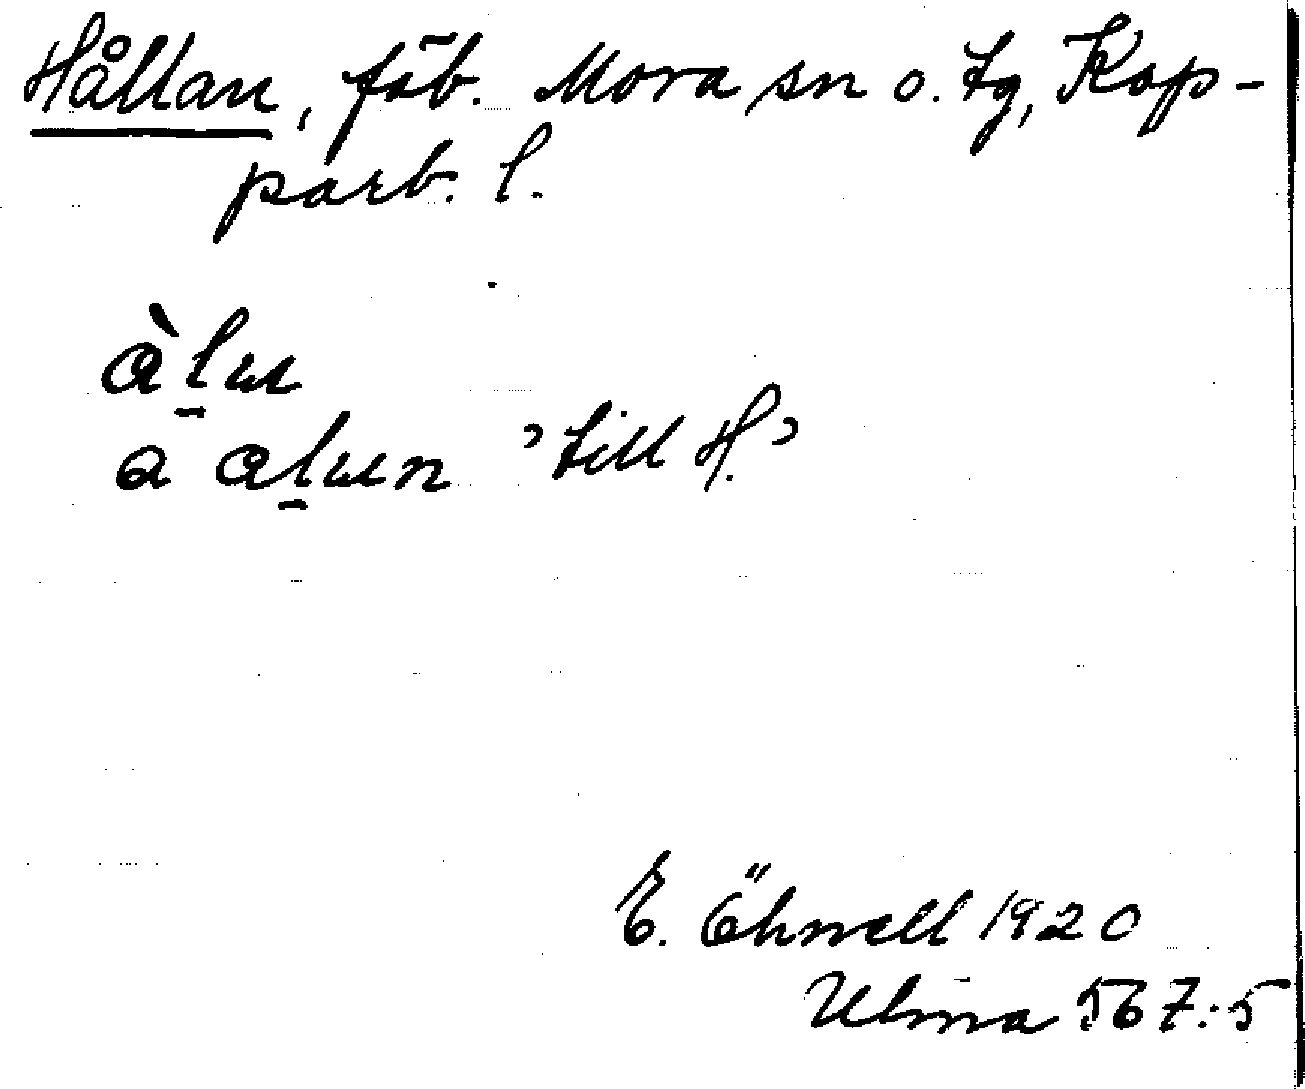 Hållan, fäb. Mora sn o. tg, Kop-
parb. l.
àl̠ɯ
a al̠ɯn 'till H.'
E. Öhnell 1920
Ulma 567:5